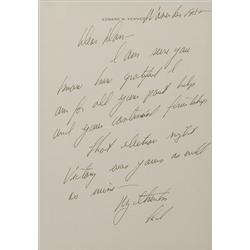 EDWARD M. KENNEDY
November 1962
Dear Dan —
I am sure you
know how grateful I
am for all your past help
and your continued friendship
That election night
Victory was yours as well
as mine —
My thanks
Ted